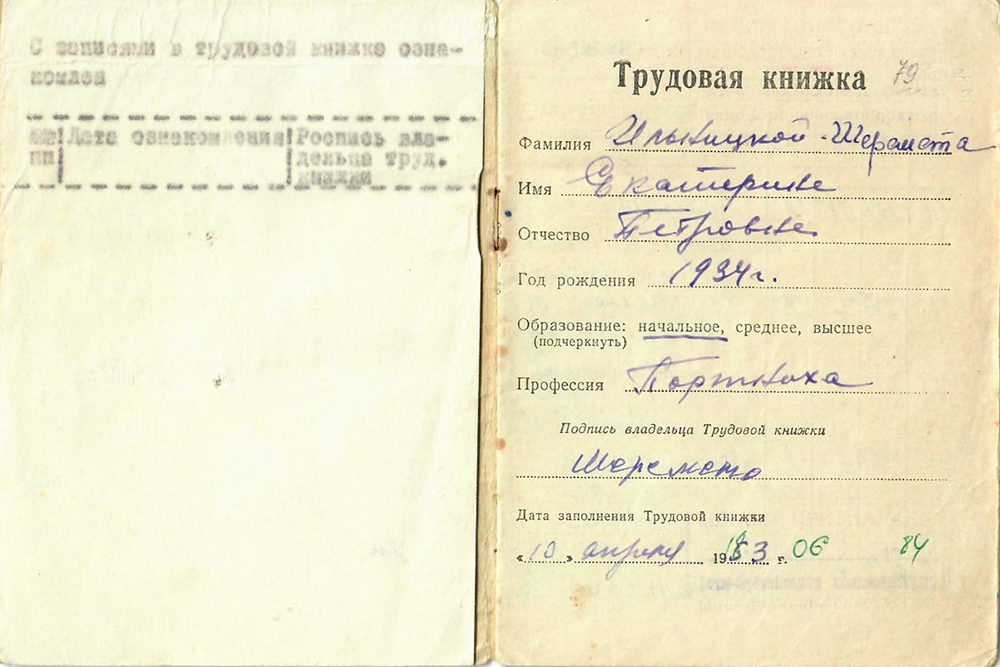 С записями в трудовой книжке озна-
комлен
№№ пп ! Дата ознакомления ! Роспись вла-
дельца труд.
книжки
Трудовая книжка 79
Фамилия Ильницкой-Шеремета
Имя Екатерине
Отчество Петровне
Год рождения 1934 г.
Образование: начальное, среднее, высшее
(подчеркнуть)
Профессия Портниха
Подпись владельца Трудовой книжки
Шеремета
Дата заполнения Трудовой книжки
«10» апреля 1953 г. 06 84